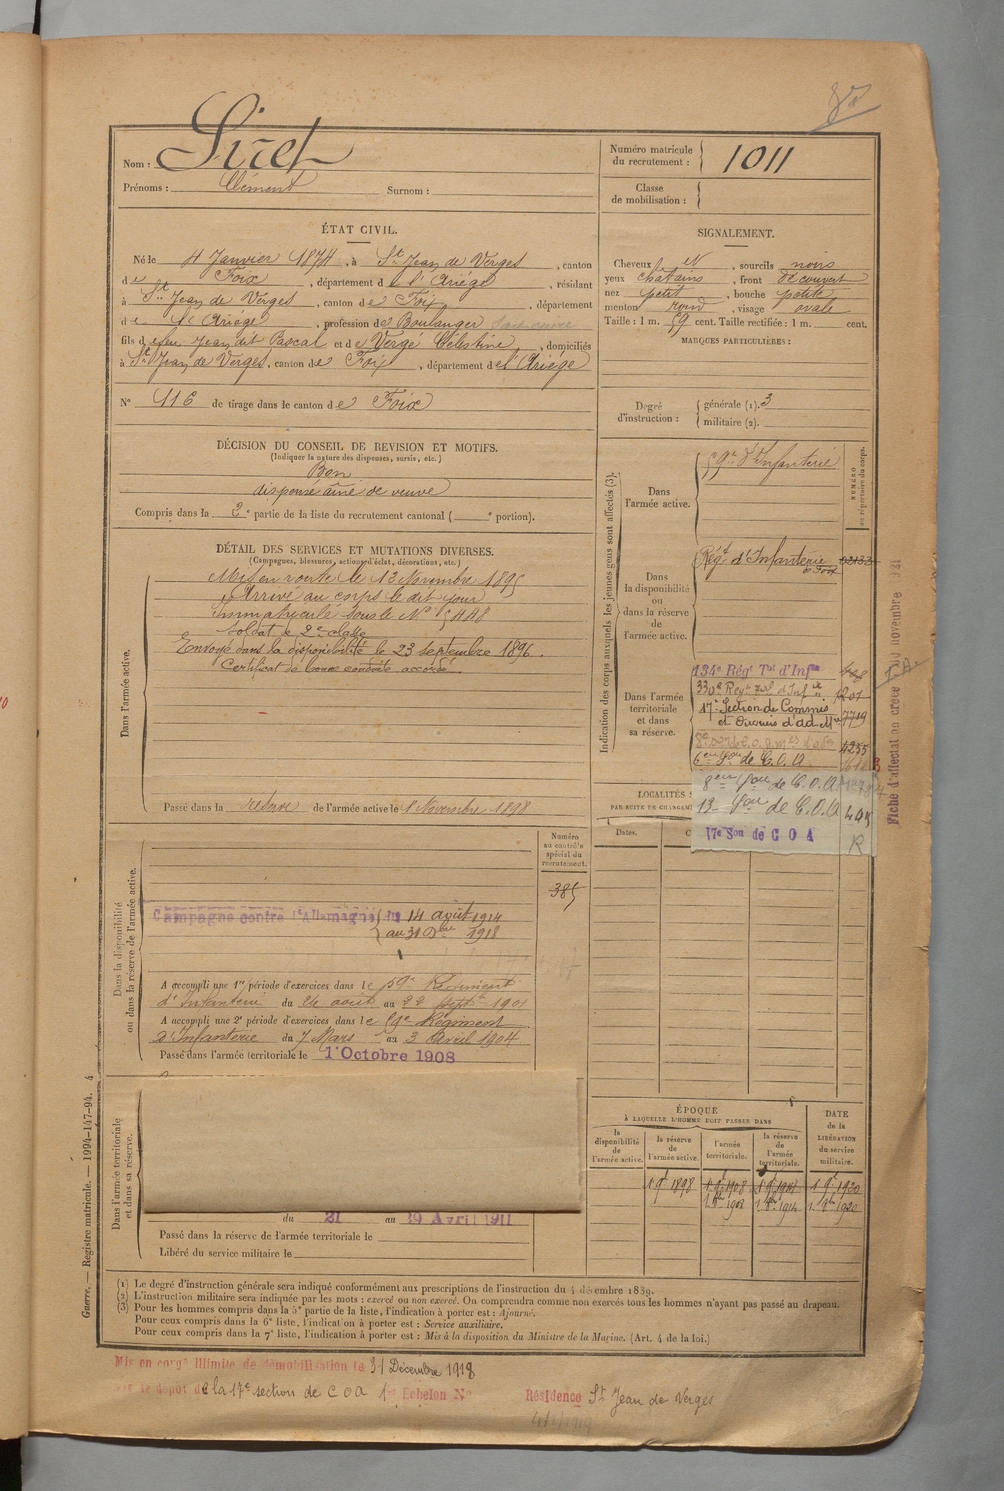 Nom : Siret
Prénoms : Clément Surnom :
Numéro matricule
du recrutement : 1011
Classe
de mobilisation :
ÉTAT CIVIL.
Né le 4 Janvier 1874, à St Jean de Verges, canton
de Foix, département de l'Ariége, résidant
à St Jean de Verges, canton de Foix, département
de l'Ariége, profession de Boulanger
fils de feu Jean dit Pascal et de Verge Célestine, domiciliés
à St Jean de Verges, canton de Foix, département de l'Ariége
N° 116 de tirage dans le canton de Foix
SIGNALEMENT.
Cheveux et, sourcils noirs
yeux chatains, front découvert
nez petit, bouche petite
menton rond, visage ovale
Taille : 1 m. 59 cent. Taille rectifiée : 1 m. cent.
MARQUES PARTICULIÈRES :
Degré
d'instruction :
générale (1). 3
militaire (2).
DÉCISION DU CONSEIL DE REVISION ET MOTIFS.
(Indiquer la nature des dispenses, sursis, etc.)
Bon
dispensé aîné de veuve
Compris dans la 2e partie de la liste du recrutement cantonal ( e portion).
DÉTAIL DES SERVICES ET MUTATIONS DIVERSES.
(Campagnes, blessures, actions d'éclat, décorations, etc.)
Dans l'armée active.
Mis en route le 13 Novembre 1895
Arrivé au corps le dit jour
Immatriculé sous le N° 5448
Soldat de 2e classe
Envoyé dans la disponibilité le 23 septembre 1896.
Certificat de bonne conduite accordé.
Passé dans la réserve de l'armée active le 1 Novembre 1898
Indication des corps auxquels les jeunes gens sont affectés (3).
NUMÉRO
au répertoire du corps.
Dans
l'armée active.
59e d'Infanterie
Dans
la disponibilité
ou
dans la réserve
de
l'armée active.
Régt d'Infanterie
de Foix
Dans l'armée
territoriale
et dans
sa réserve.
134e Régt Tal d'Infie
330e Regt Tal d'Infie 1201
17e Section de Commis
et Ouvriers d'ad. Mre 7719
4255
6eme Son de C.O.A.
8eme Son de C.O.A.
13 Son de C.O.A 445
17e Son de COA R
LOCALITÉS
PAR SUITE DE CHANGEM
Dates.
Fiche d'affectat on créée 30 novembre 1921
Dans la disponibilité
ou dans la réserve de l'armée active.
Numéro
au contrôle
spécial du
recrutement.
385
Campagne contre l'Allemagne du 14 août 1914
au 31 Dbre 1918
A accompli une 1re période d'exercices dans le 59e Régiment
d'Infanterie du 26 août au 22 septe 1901
A accompli une 2e période d'exercices dans le 59e Régiment
d'Infanterie du 7 Mars au 3 avril 1904
Passé dans l'armée territoriale le 1 Octobre 1908
Dans l'armée territoriale
et dans sa réserve.
du 21 au 29 Avril 1911
Passé dans la réserve de l'armée territoriale le
Libéré du service militaire le
ÉPOQUE
À LAQUELLE L'HOMME DOIT PASSER DANS
la
disponibilité
de
l'armée active.
la réserve
de
l'armée active.
l'armée
territoriale.
la réserve
de
l'armée
territoriale.
DATE
de la
LIBÉRATION
du service
militaire.
1 9e 1898 1 9e 1908 1 9e 1914 1 9e 1920
1. 8bre 1908 1. 8bre 1914 1. 8bre 1920
(1) Le degré d'instruction générale sera indiqué conformément aux prescriptions de l'instruction du 4 décembre 1889.
(2) L'instruction militaire sera indiquée par les mots : exercé ou non exercé. On comprendra comme non exercés tous les hommes n'ayant pas passé au drapeau.
(3) Pour les hommes compris dans la 5e partie de la liste, l'indication à porter est : Ajourné.
Pour ceux compris dans la 6e liste, l'indication à porter est : Service auxiliaire.
Pour ceux compris dans la 7e liste, l'indication à porter est : Mis à la disposition du Ministre de la Marine. (Art. 4 de la loi.)
Guerre. — Registre matricule. — 1994-147-94. 4
Mis en congé illimité de démobilisation le 31 Décembre 1918
par le dépôt de la 17e section de COA 1er Échelon N°
Résidence St Jean de Verges